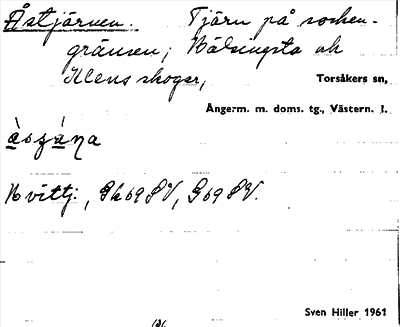 Åstjärnen. Tjärn på socken-
gränsen; Hälsingsta ock
Klens skogar,
Torsåkers sn,
Ångerm. m. doms. tg., Västern. l.
Hvittj:, Gk69SV, G69SV.
Sven Hiller 1961